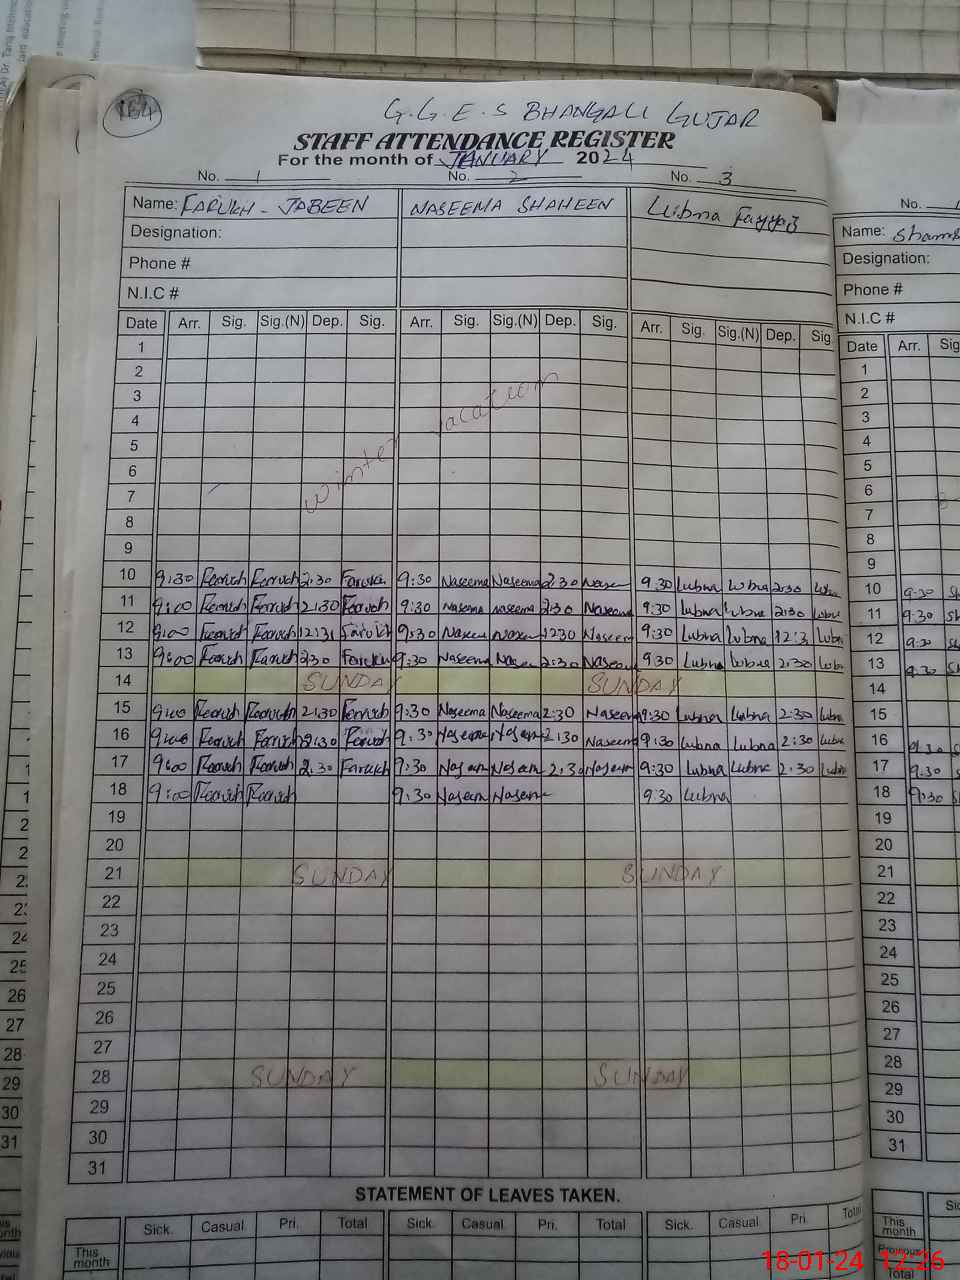 164
G.G.E.S BHANGALI GUJAR
STAFF ATTENDANCE REGISTER
For the month of JANUARY 2024
No. 1 No. 2 No. 3
Name: FARUKH - JABEEN NASEEMA SHAHEEN Lubna Fayyaz
Designation:
Phone #
N.I.C #
Date Arr. Sig. Sig.(N) Dep. Sig. Arr. Sig. Sig.(N) Dep. Sig. Arr. Sig. Sig.(N) Dep. Sig.
1
2
3
4
5
6
7
8
9
Winter vacation
10 9:30 Farukh Farukh 2:30 Farukh 9:30 Naseema Naseema 2:30 Nase 9:30 Lubna Lubna 2:30 Lubna
11 9:00 Farukh Farukh 2:30 Farukh 9:30 Naseema Naseema 2:30 Naseema 9:30 Lubna Lubna 2:30 Lubna
12 9:00 Farukh Farukh 12:31 Farukh 9:30 Naseem Nasee 1230 Naseem 9:30 Lubna Lubna 12:3 Lubn
13 9:00 Farukh Farukh 2:30 Farukh 9:30 Naseema Nasee 2:30 Naseem 9:30 Lubna Lubna 2:30 Lubn
14 SUNDAY SUNDAY
15 9:00 Farukh Farukh 2:30 Farukh 9:30 Naseema Naseema 2:30 Naseem 9:30 Lubna Lubna 2:30 Lubna
16 9:00 Farukh Farukh 2:30 Farukh 9:30 Naseema Naseem 2:30 Naseem 9:30 Lubna Lubna 2:30 Lubna
17 9:00 Farukh Farukh 2:30 Farukh 9:30 Naseem Naseem 2:30 Naseem 9:30 Lubna Lubna 2:30 Lubna
18 9:00 Farukh Farukh 9:30 Naseem Naseem 9:30 Lubna
19
20
21 SUNDAY SUNDAY
22
23
24
25
26
27
28 SUNDAY SUNDAY
29
30
31
STATEMENT OF LEAVES TAKEN.
Sick. Casual. Pri. Total Sick. Casual. Pri. Total Sick. Casual. Pri. Total
This month
No.
Name: Sham
Designation:
Phone #
N.I.C #
Date Arr. Sig
1
2
3
4
5
6
7
8
9
10 9:30 Sh
11 9:30 Sh
12 9:30 Sh
13 9:30 Sh
14
15
16 9:30 S
17 9:30 S
18 9:30 S
19
20
21
22
23
24
25
26
27
28
29
30
31
This month
Previous
Total
18-01-24 12:26